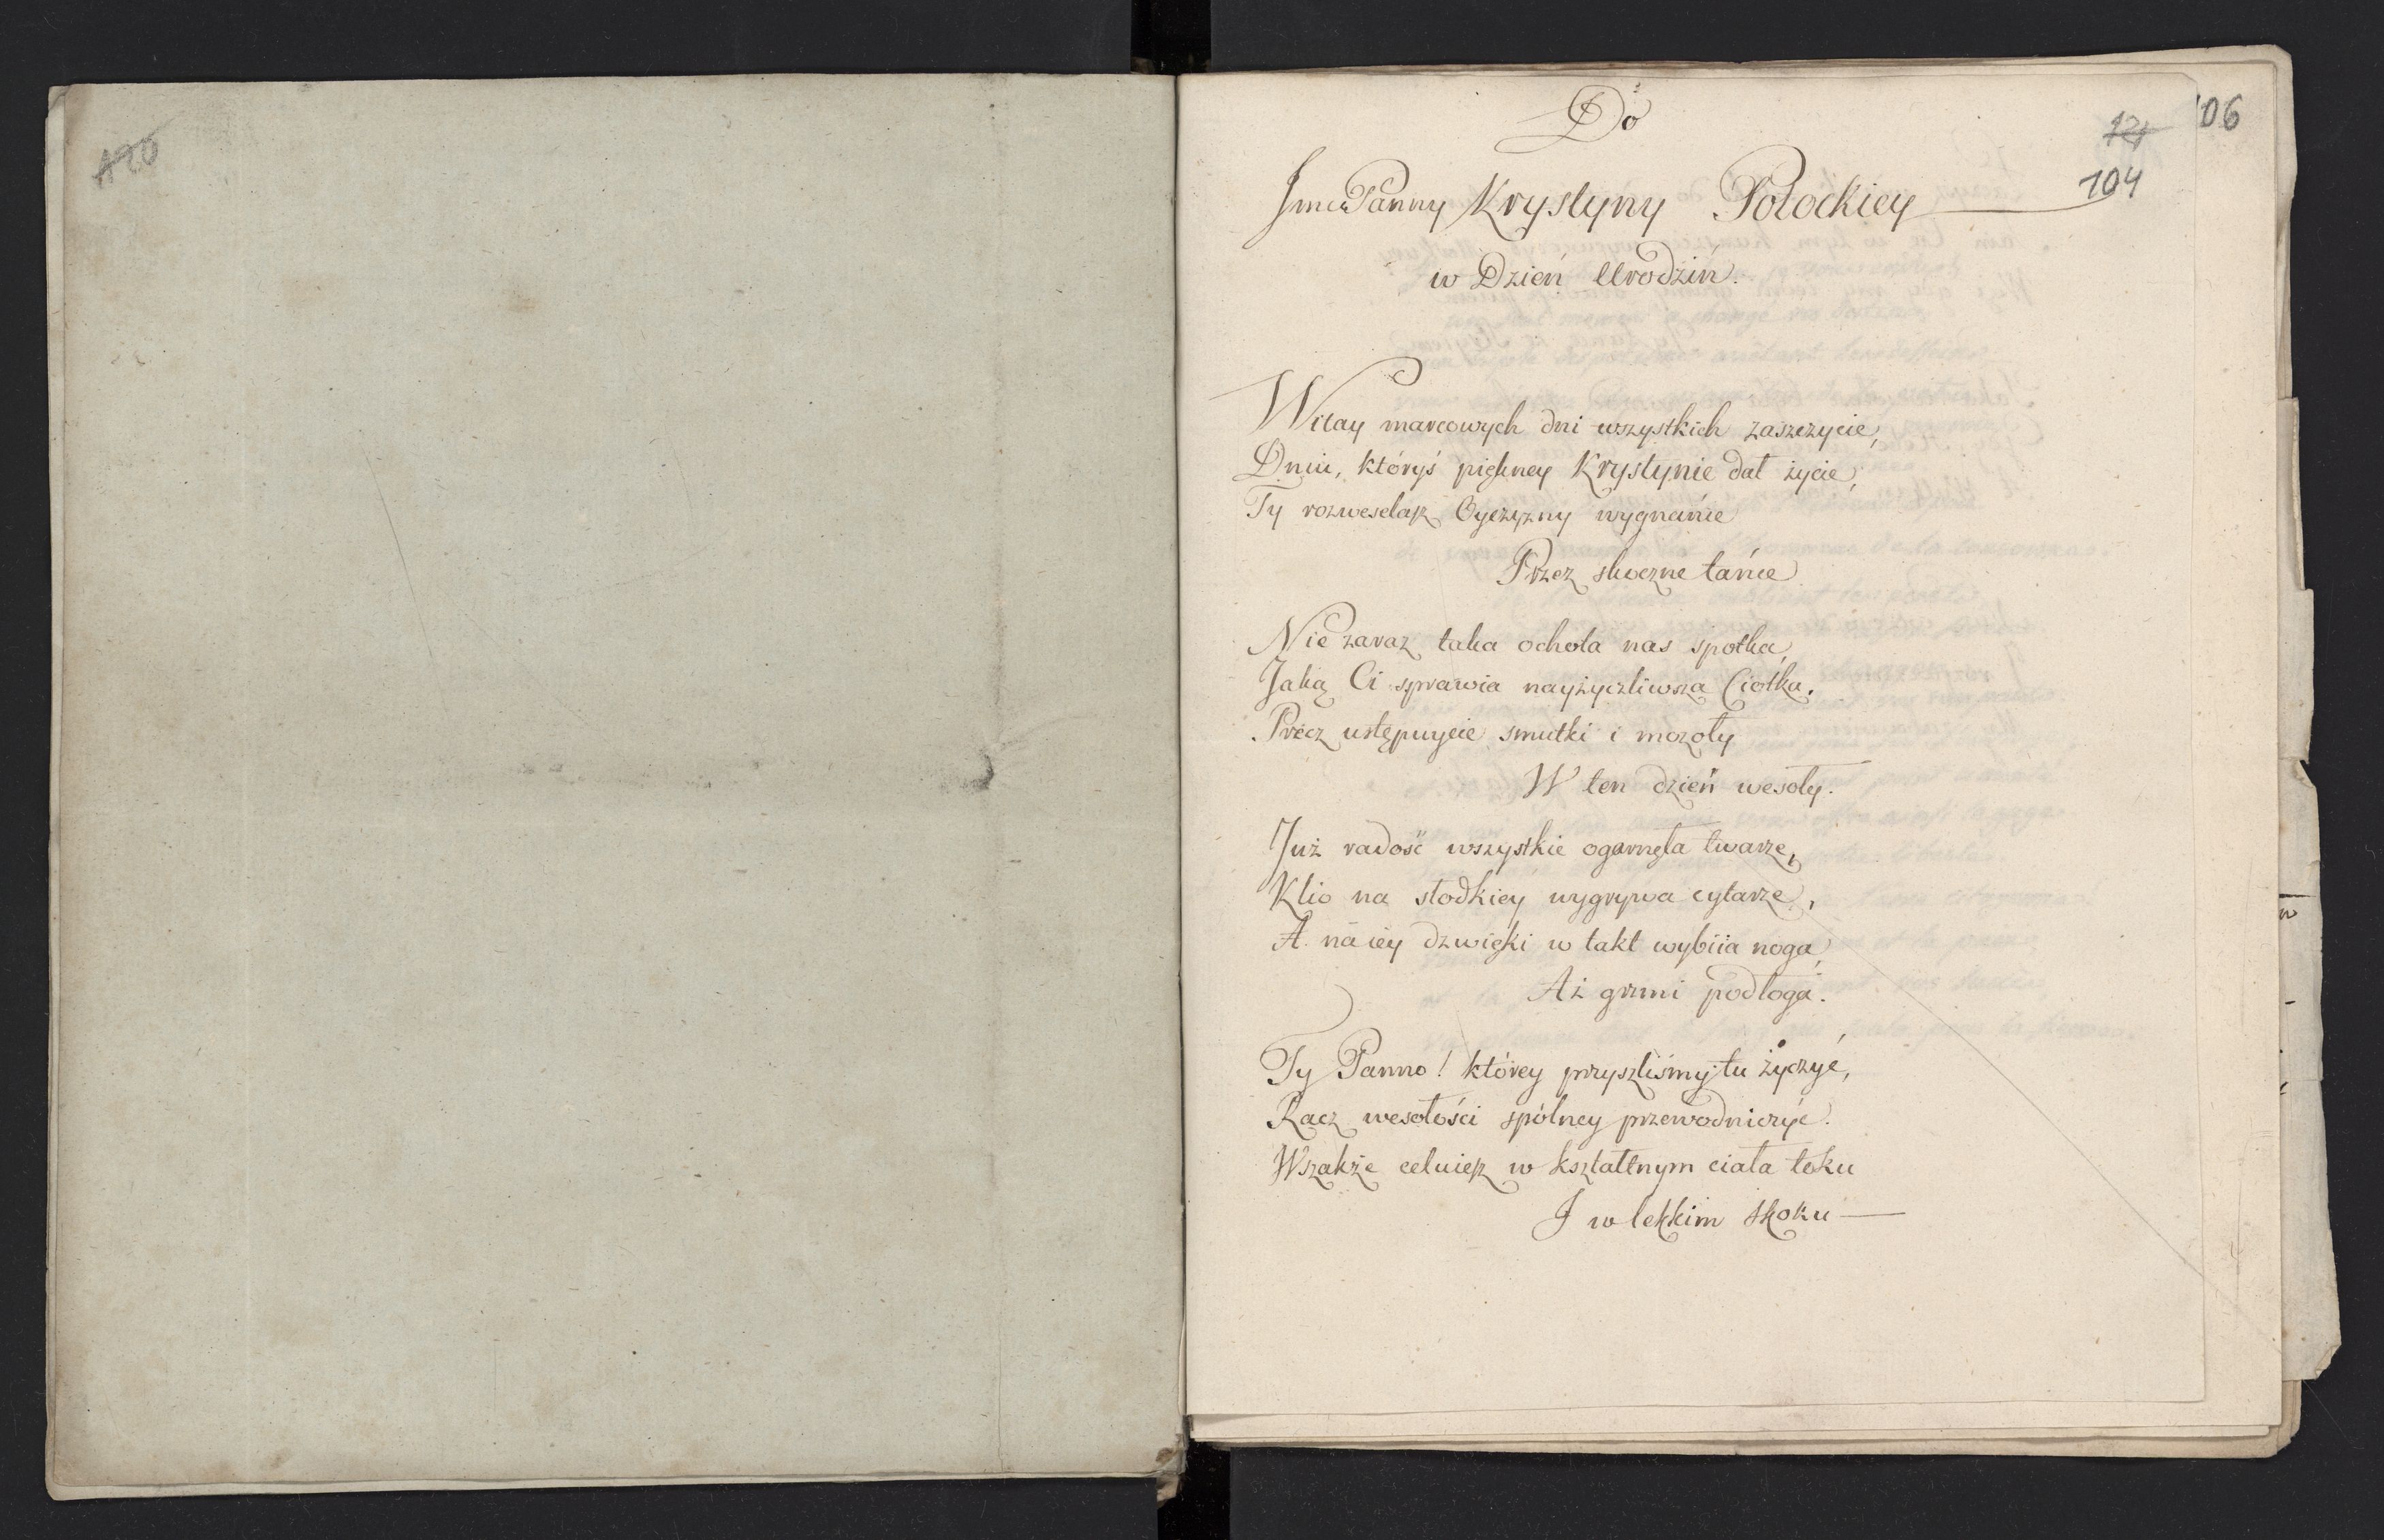 120
Do
JmćPanny Krystyny Potockiey
w Dzień Urodzin.
121
104
106
Witay marcowych dni wszystkich zaszczycie,
Dniu, któryś piękney Krystynie dał życie,
Ty rozweselasz Oyczyzny wygnańce
Przez skoczne tańce
Nie zaraz taka ochota nas spotka,
Jaką Ci sprawia nayżyczliwsza Ciotka.
Precz ustępuycie smutki i mozoły
W ten dzień wesoły.
Już radość wszystkie ogarnęła twarze,
Klio na słodkiey wygrywa cytarze,
A na iéy dzwięki w takt wybiia noga,
Aż grzmi podłoga.
Ty Panno! którey przyszliśmy tu życzyć,
Racz wesołości spólney przewodniczyć.
Wszakże celuiesz w kształtnym ciała toku
I w lekkim skoku —